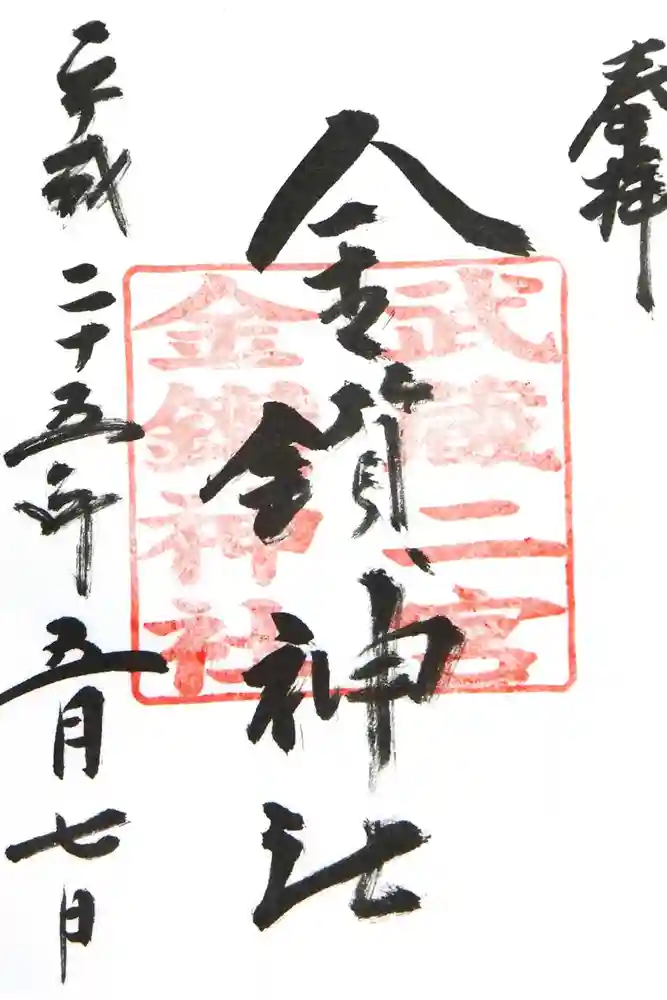 奉拝
武蔵二宮
金鑚神社
金鑚神社
平成二十五年五月七日